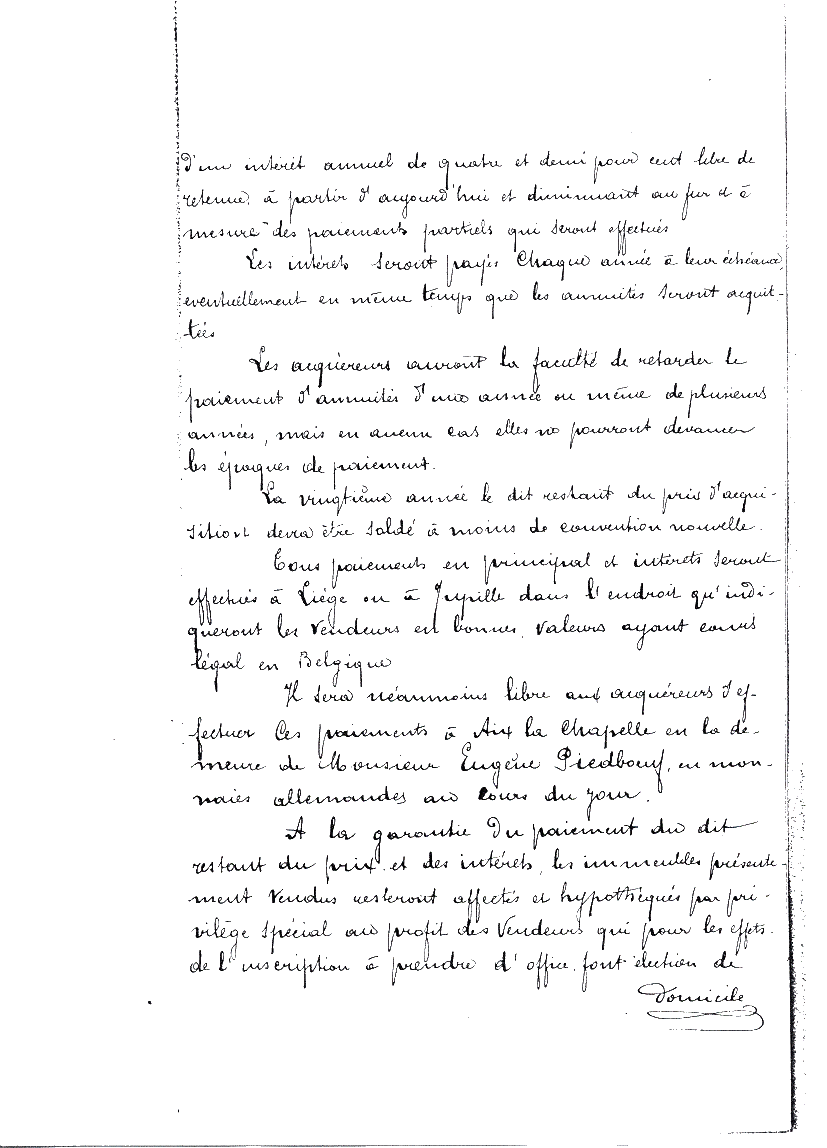 d'un intérêt annuel de quatre et demi pour cent libre de
retenue, à partir d'aujourd'hui et diminuant au fur et à
mesure des paiements partiels qui seront effectués
Les intérêts seront payés chaque année à leur échéance,
eventuellement en même temps que les annuités seront acquit-
tées
Les acquéreurs auront la faculté de retarder le
paiement d'annuités d'une année ou même de plusieurs
années, mais en aucun cas elles ne pourront devancer
les époques de paiement.
La vingtième année le dit restant du prix d'acqui-
sition devra être soldé à moins de convention nouvelle.
Tous paiements en principal et intérêts seront
effectués à Liége ou à Jupille dans l'endroit qu'indi-
queront les vendeurs en bonnes valeurs ayant cours
légal en Belgique
Il sera néanmoins libre aux acquéreurs d'ef-
fectuer ces paiements à Aix la Chapelle en la de-
meure de Monsieur Eugène Piedboeuf, en mon-
naies allemandes au cours du jour.
A la garantie du paiement du dit
restant du prix et des intérêts, les immeubles présente-
ment vendus resteront affectés et hypothéqués par pri-
vilège spécial au profit des Vendeurs qui pour les effets
de l'inscription à prendre d'office, font élection de
Domicile